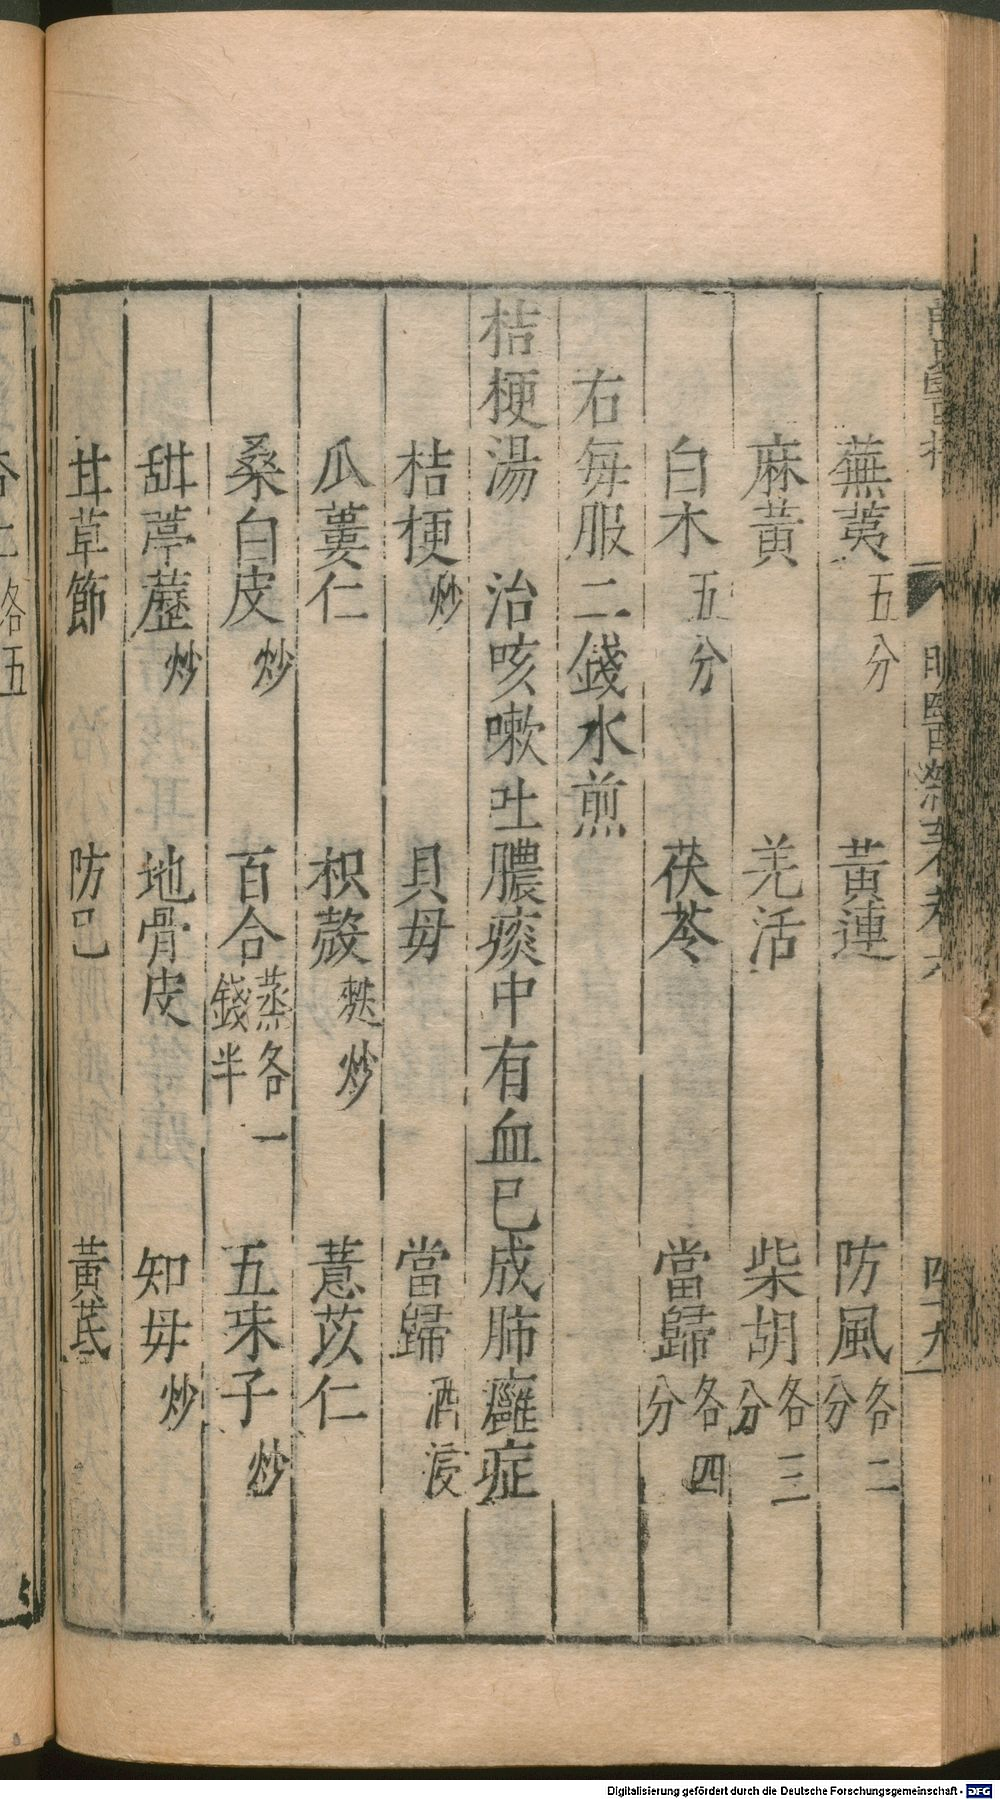 蕪荑五分　黃連　防風各二分
麻黃　羌活　柴胡各三分
白木五分　茯苓　當歸各四分
右每服二錢水煎
桔梗湯　治咳嗽吐膿痰中有血已成肺癰症
桔梗炒　貝母　當歸酒浸
瓜蔞仁　枳殼麩炒　薏苡仁
桑白皮炒　百合蒸各一錢半　五味子炒
甜葶藶炒　地骨皮　知母炒
甘草節　防已　黃芪
各五
Digitalisierung gefördert durch die Deutsche Forschungsgemeinschaft - DFG